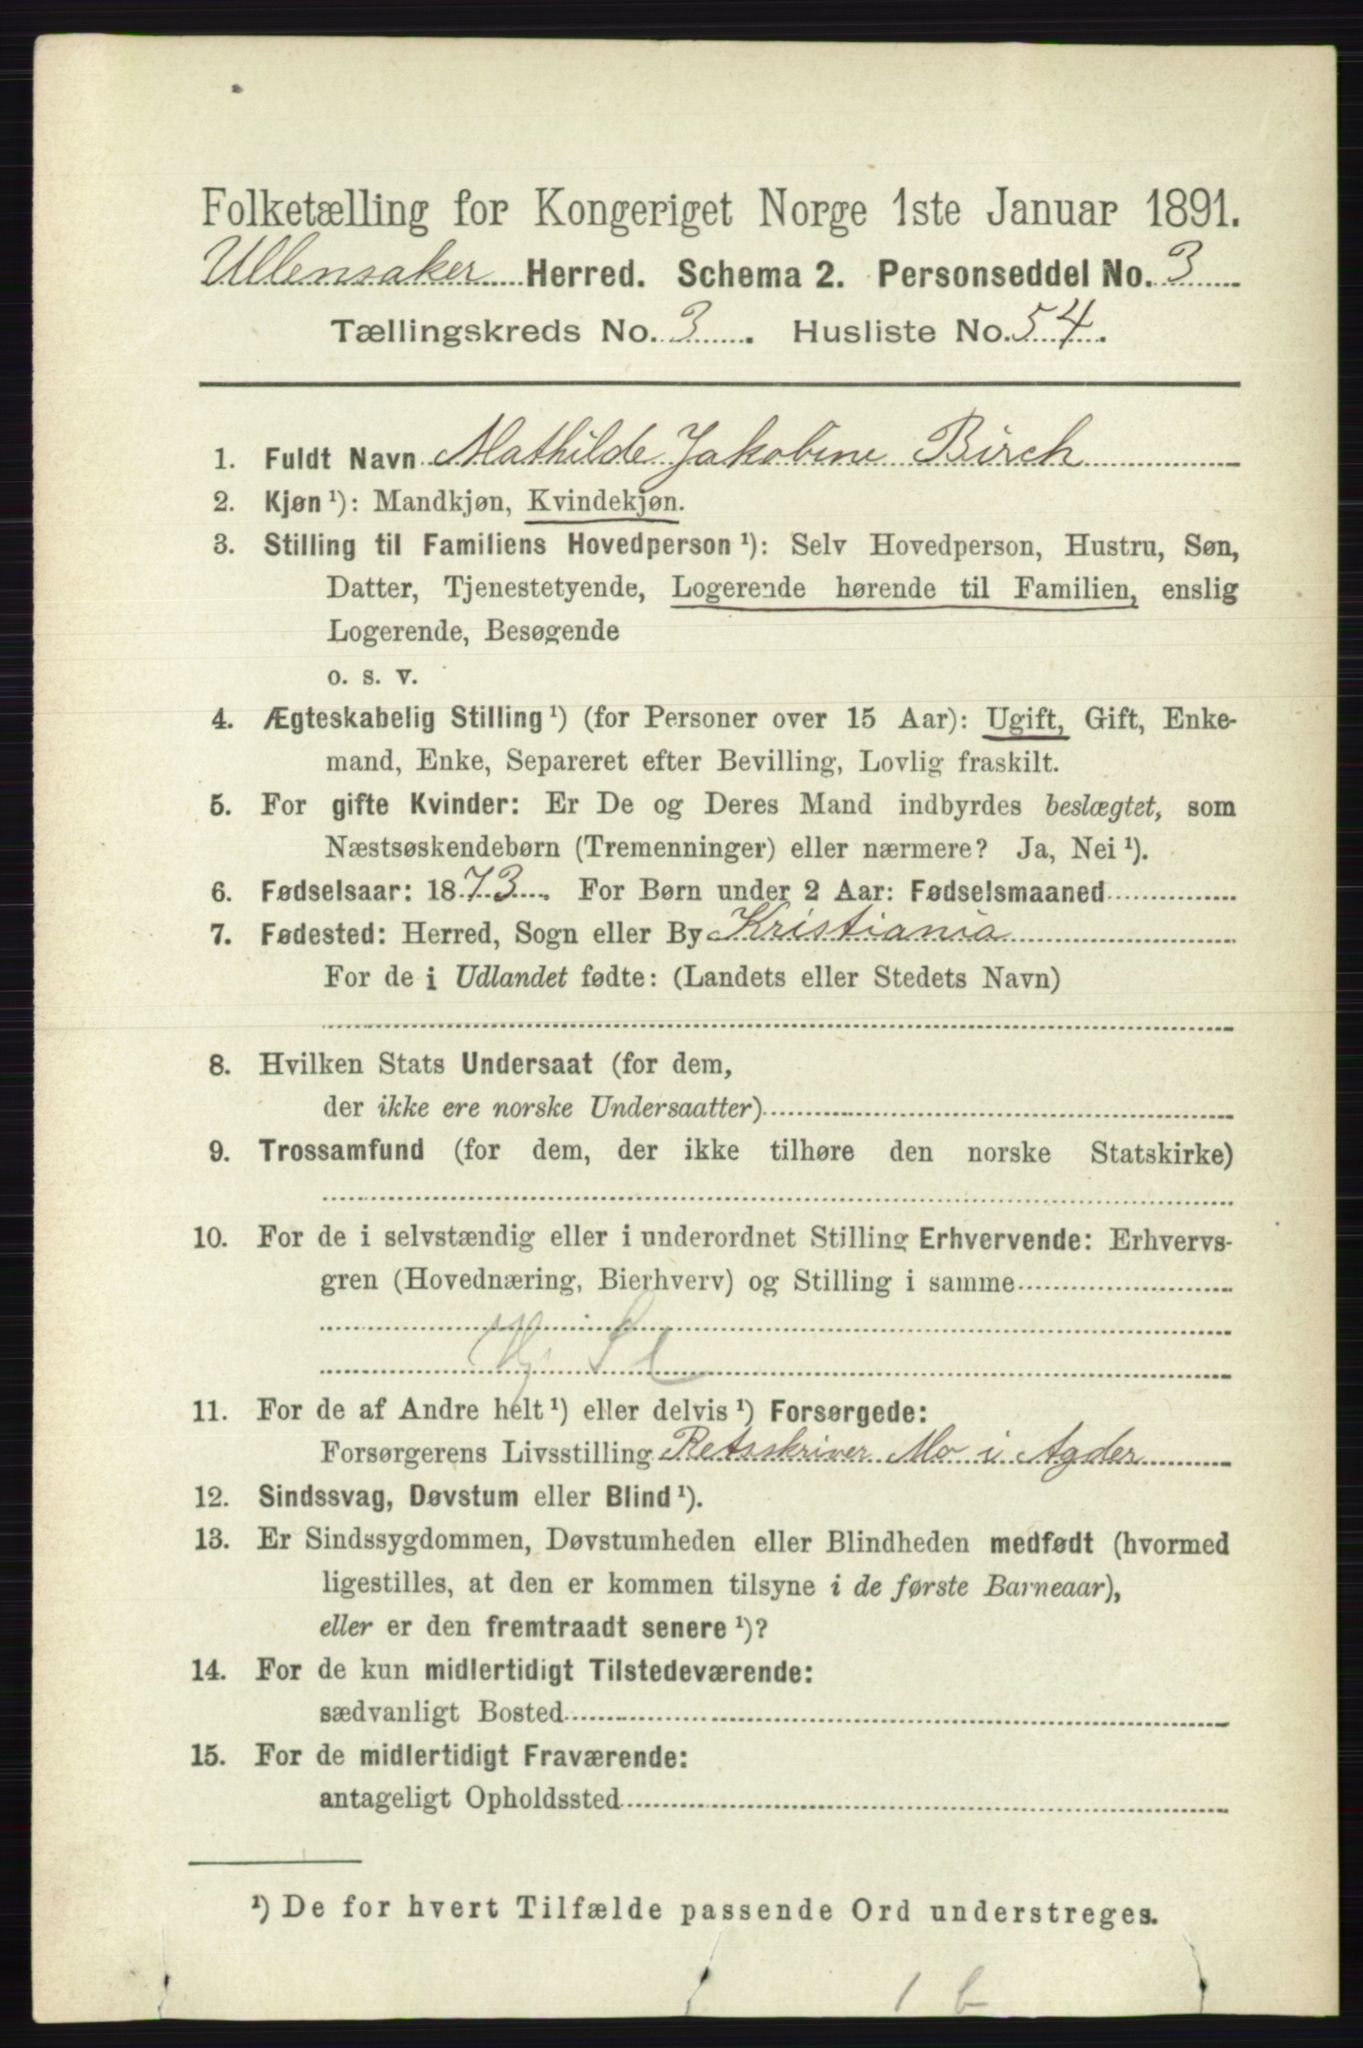 Folketælling for Kongeriget Norge 1ste Januar 1891.
Ullensaker Herred. Schema 2. Personseddel No. 3
Tællingskreds No. 3. Husliste No. 54.
1. Fuldt Navn Mathilde Jakobine Birch
2. Kjøn ¹): Mandkjøn, Kvindekjøn.
3. Stilling til Familiens Hovedperson ¹): Selv Hovedperson, Hustru, Søn,
Datter, Tjenestetyende, Logerende hørende til Familien, enslig
Logerende, Besøgende
o. s. v.
4. Ægteskabelig Stilling ¹) (for Personer over 15 Aar): Ugift, Gift, Enke-
mand, Enke, Separeret efter Bevilling, Lovlig fraskilt.
5. For gifte Kvinder: Er De og Deres Mand indbyrdes beslægtet, som
Næstsøskendebørn (Tremenninger) eller nærmere? Ja, Nei ¹).
6. Fødselsaar: 1873. For Børn under 2 Aar: Fødselsmaaned
7. Fødested: Herred, Sogn eller By Kristiania
For de i Udlandet fødte: (Landets eller Stedets Navn)
8. Hvilken Stats Undersaat (for dem,
der ikke ere norske Undersaatter)
9. Trossamfund (for dem, der ikke tilhøre den norske Statskirke)
10. For de i selvstændig eller i underordnet Stilling Erhvervende: Erhvervs-
gren (Hovednæring, Bierhverv) og Stilling i samme
11. For de af Andre helt ¹) eller delvis ¹) Forsørgede:
Forsørgerens Livsstilling Retsskriver Mo i Agder
12. Sindssvag, Døvstum eller Blind ¹).
13. Er Sindssygdommen, Døvstumheden eller Blindheden medfødt (hvormed
ligestilles, at den er kommen tilsyne i de første Barneaar),
eller er den fremtraadt senere ¹)?
14. For de kun midlertidigt Tilstedeværende:
sædvanligt Bosted
15. For de midlertidigt Fraværende:
antageligt Opholdssted
¹) De for hvert Tilfælde passende Ord understreges.
1 b